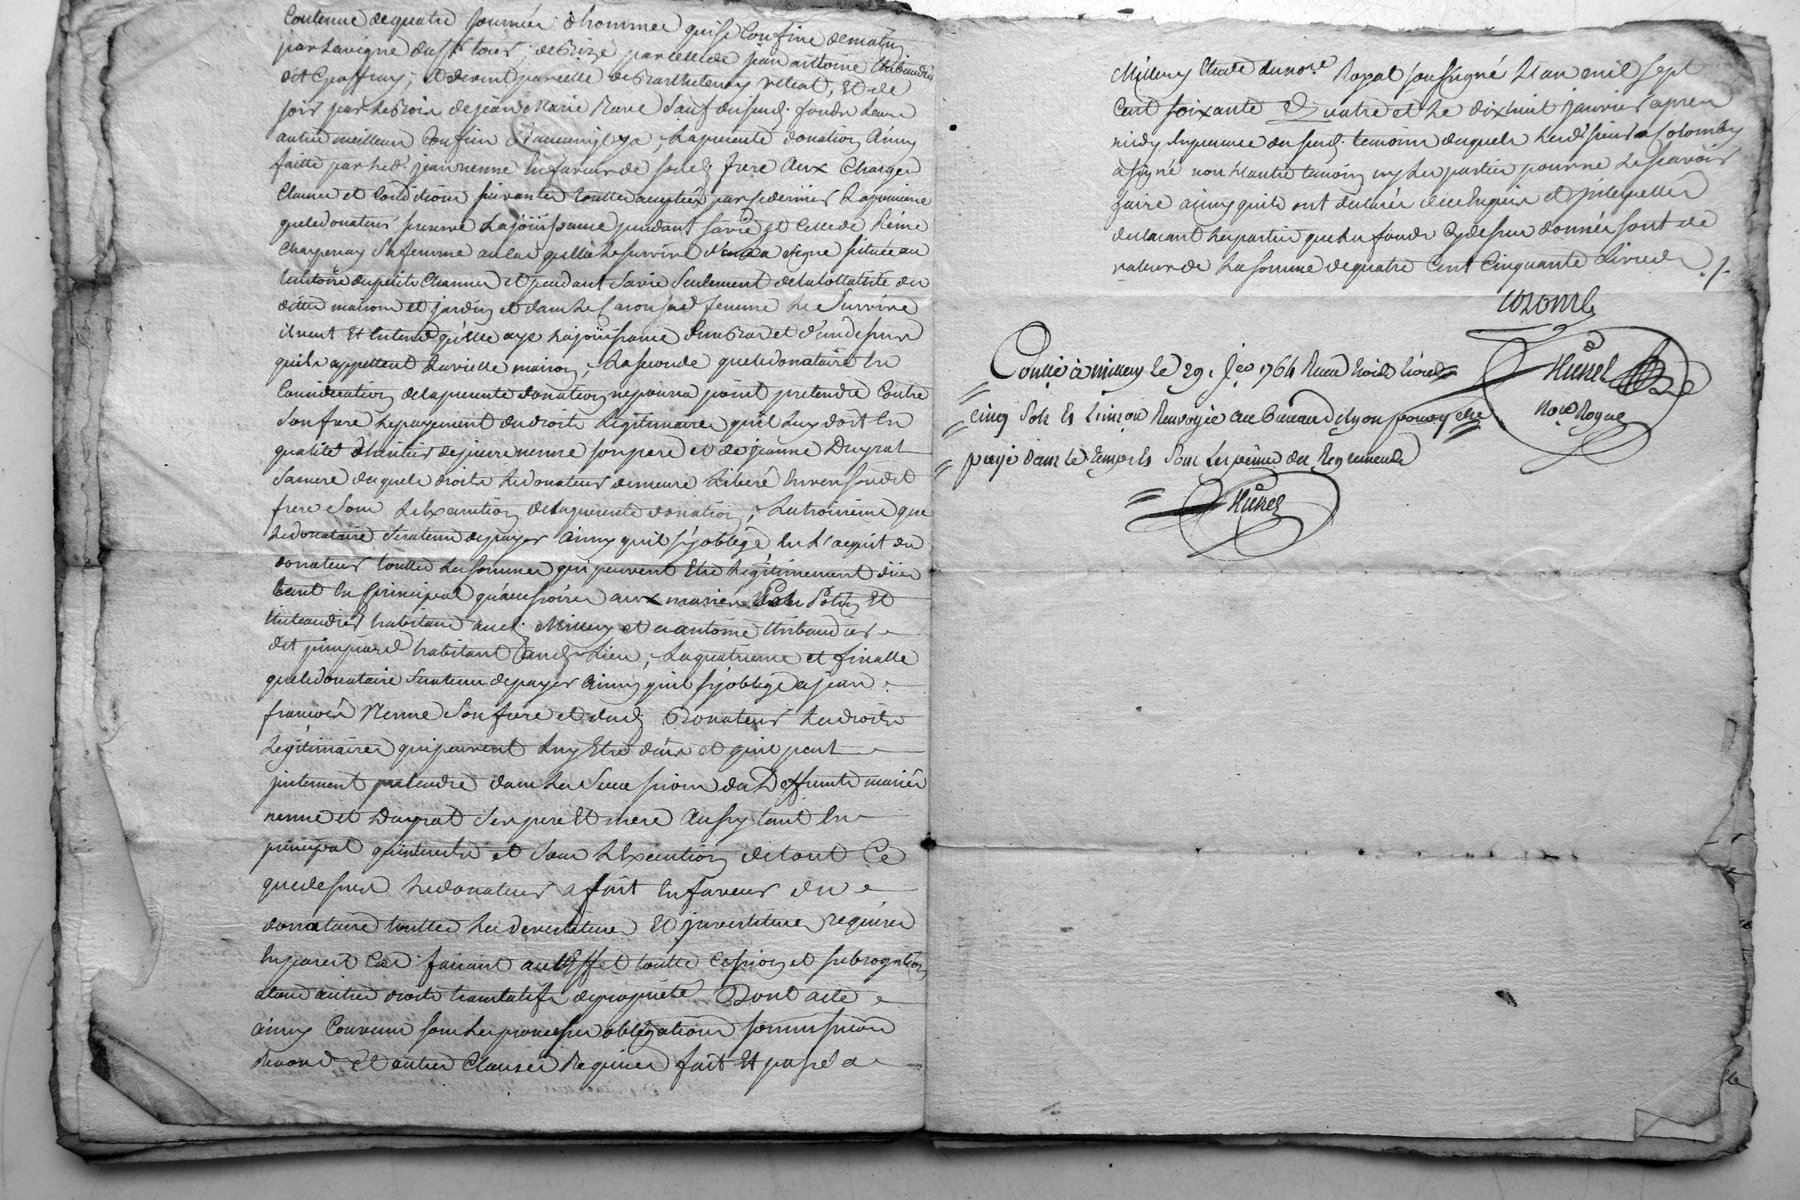 Contenue de quatre journée d'hommée qui se Confine de matin
par la vigne du Sr tour, de Bize par celle de jean antoine thibaudier
dit Geoffray, et de vent par celle de Barthelemy Vetrat, Et de
soir par le Bois de jean Marie sauf du susd. fonds leurs
autre meilleurs Confin la presente donation Ainsy
faitte par led. jean nenne En faveur de sond. frere Aux Charges
Clauses et Conditions suivantes touttes acceptées par ce dernier La premiere
que le donateur se reserve La joüissance pendant sa vie et Celle de Reine
Charpenay Sa femme au Cas qu'elle Le survive d'une vigne située au
territoire du petit et pendant Sa vie Seulement de la totalité du
dittes maison et jardin et dans Le Cas ou sad. femme Le Survive
il veut Et Entend qu'Elle aye La joüissance d'un Bas et d'un dessus
qu'ils appellent La vielle maison, La seconde que le donataire En
Considération de la presente donation ne pourra point pretendre Contre
Son frere Le payement du droits Légitimaire qu'il Luy doit En
qualité d'héritier de pierre nenne son pere et de jeanne Duyrat
Sa mere du quels droits Le donateur demeure Libéré Envers son dit
frere Sous L'Exécution de la presente donation, La troisieme que
Le donataire Sera tenu de payer Ainsy qu'il s'y oblege En L'acquit du
donateur touttes Les sommes qui peuvent Etre Légitimement düe
tant En principal qu'accessoires aux mariés Potin Et
thibaudier habitans aud. Millery et a antoine thibaudier
dit habitant aud. Lieu, La quatrieme et finalle
que le donataire Sera tenu de payer Ainsy qu'il s'y oblege a jean
françois Nenne Son frere et dud. Donateur Les droits
Légitimaires qui peuvent Luy Etre düs et qu'il peut
justement pretendre dans Les Successions des Deffunts mariés
nenne et Duyrat Ses pere Et mere Aussy tant En
principal qu'interests et Sous L'Exécution de tout Ce
que dessus Le donateur a fait En faveur du
donataire touttes Les devestiture Et investiture requises
En pareil Cas faisant a cet Effet toutte Cession et subrogation
et autres droits translatifs de proprieté Dont acte
Ainsy Convenu sous Les promesses obligations soumissions
Renons. Et autres Clauses Requises fait Et passé a
Millery Etude du nore. Royal soussigné L'an mil sept
Cent soixante Quatre et Le dix huit janvier apres
midy En presence du susd. temoins duquels Led. sieur Colomby
a signé non L'autre temoin ny Les parties pour ne Le savoir
faire ainsy qu'ils ont declarés de ce Enquis et interpellés
declarant Les parties que Les fonds Cy dessus donnés sont de
valeur de La somme de quatre Cent Cinquante Livres ./.
Colomb
Hunel
Nore. Royal
Controllé a millery Le 29. Jer. 1764 Recu trois Livres
cinq sols Et L'insion Renvoyée au bureau de Lyon pour y etre
payé dans Le temps Et sous Les peines des Reglements
Hunel